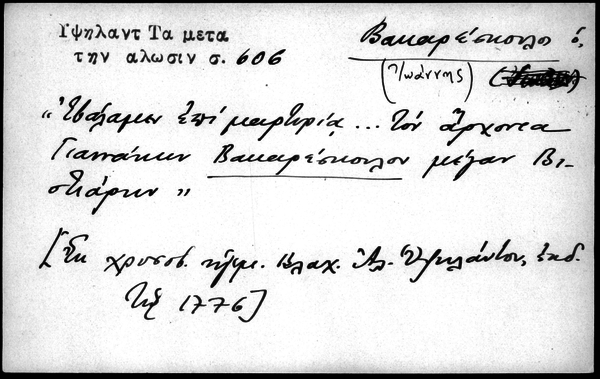 Ὑψηλαντ Τα μετα
την αλωσιν σ. 606
Βακαρέσκουλο ὁ,
(Ἰωάννης)
"Ἐβάλαμεν ἐπί μαρτυρίᾳ ... τόν ἄρχοντα
Γιαννάκην Βακαρέσκουλον μέγαν Βι-
στιάρην"
[Ἐκ χρυσοβ. ἡγεμ. Βλαχ. Ἀλ. Ὑψηλάντου, ἐκδ.
τῷ 1776]